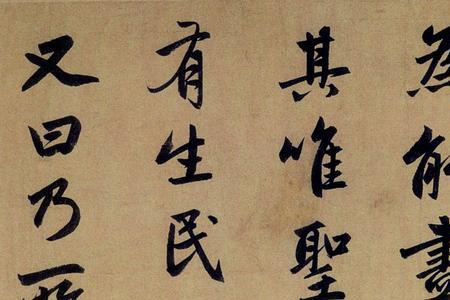 為能盡
其唯聖
有生民
又曰乃所